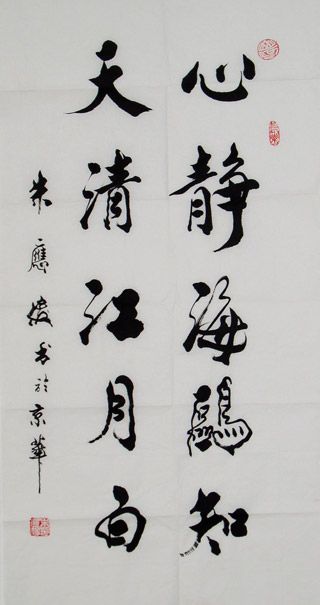 心静海鷗知
天清江月白
朱應書於京華